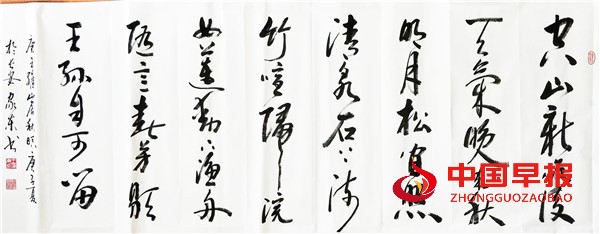 空山新雨後
天氣晚来秋
明月松间照
清泉石上流
竹喧歸浣
女蓮動下漁舟
隨意春芳歇
王孫自可留
唐王維山居秋暝庚子夏
於長安家東书
中国早报
ZHONGGUOZAOBAO